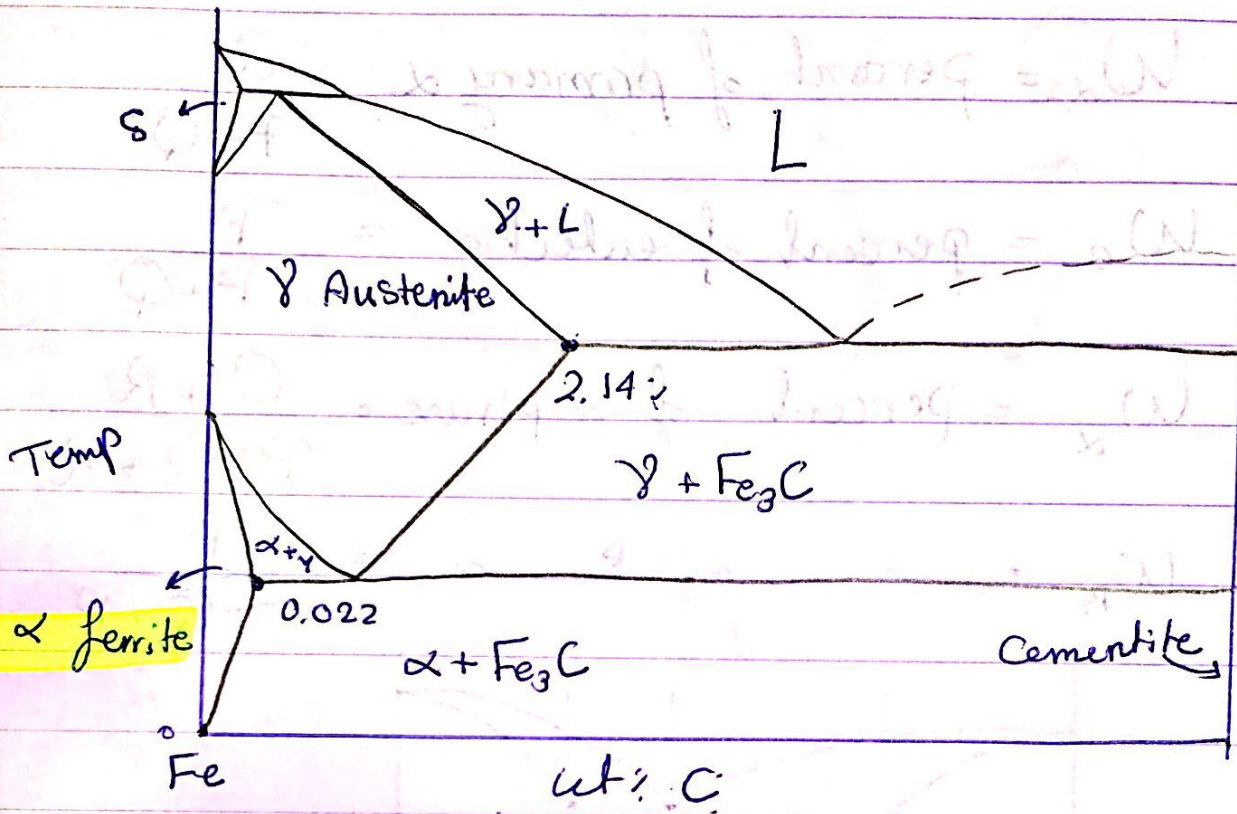 δ
L
γ + L
γ Austenite
2.14%
Temp
γ + Fe3C
α+γ
0.022
α ferrite
α + Fe3C
Cementite
0
Fe
wt% C